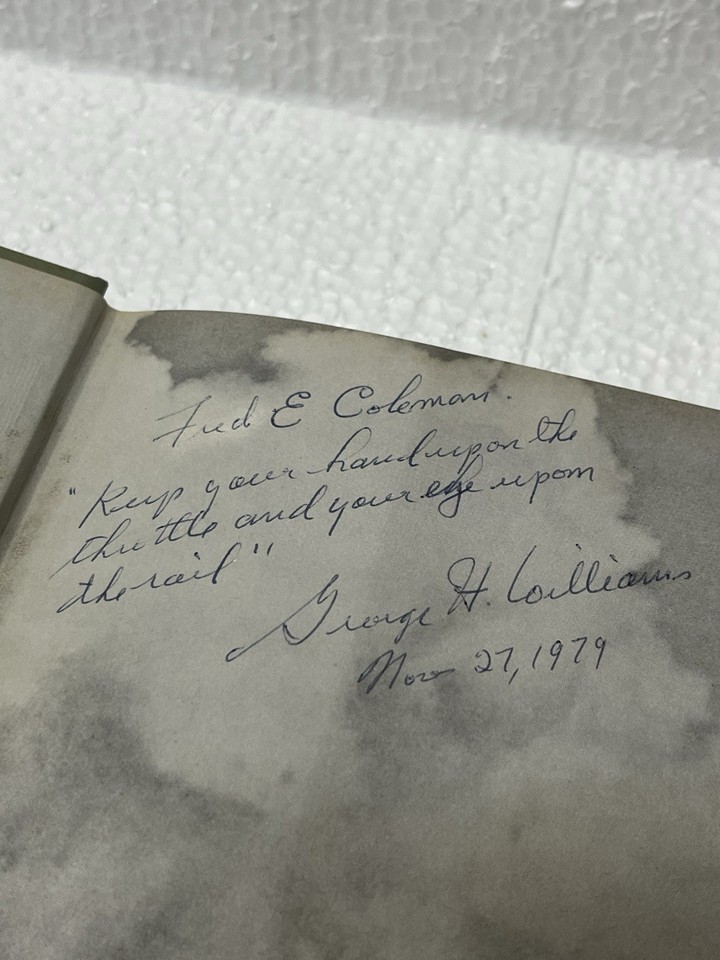 Fred E Coleman.
"Keep your hand upon the
throttle and your eye upon
the rail"
George H. Williams
Nov 27, 1979